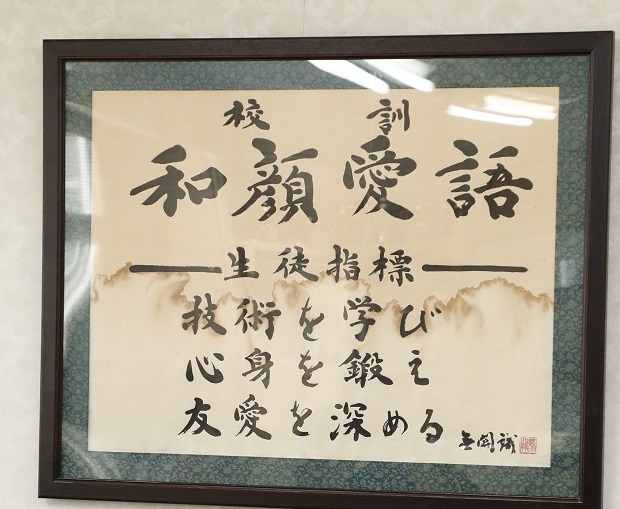 校訓
和顔愛語
生徒指標
技術を学び
心身を鍛え
友愛を深める